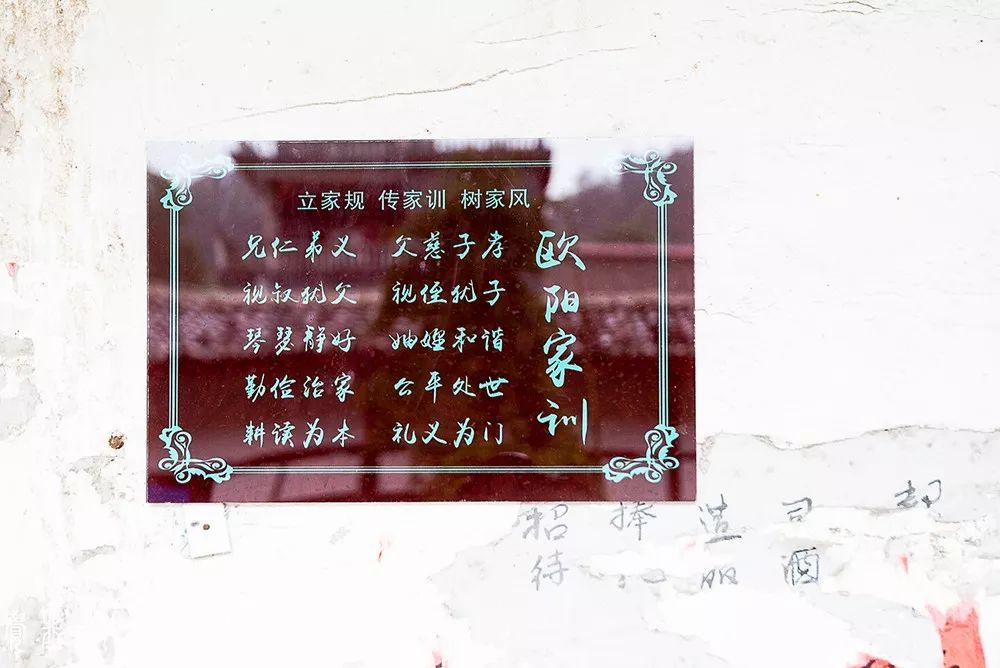 立家规 传家训 树家风
欧阳家训
兄仁弟义 父慈子孝
视叔犹父 视侄犹子
琴瑟静好 妯娌和谐
勤俭治家 公平处世
耕读为本 礼义为门
招 捧 造 司
待 酒